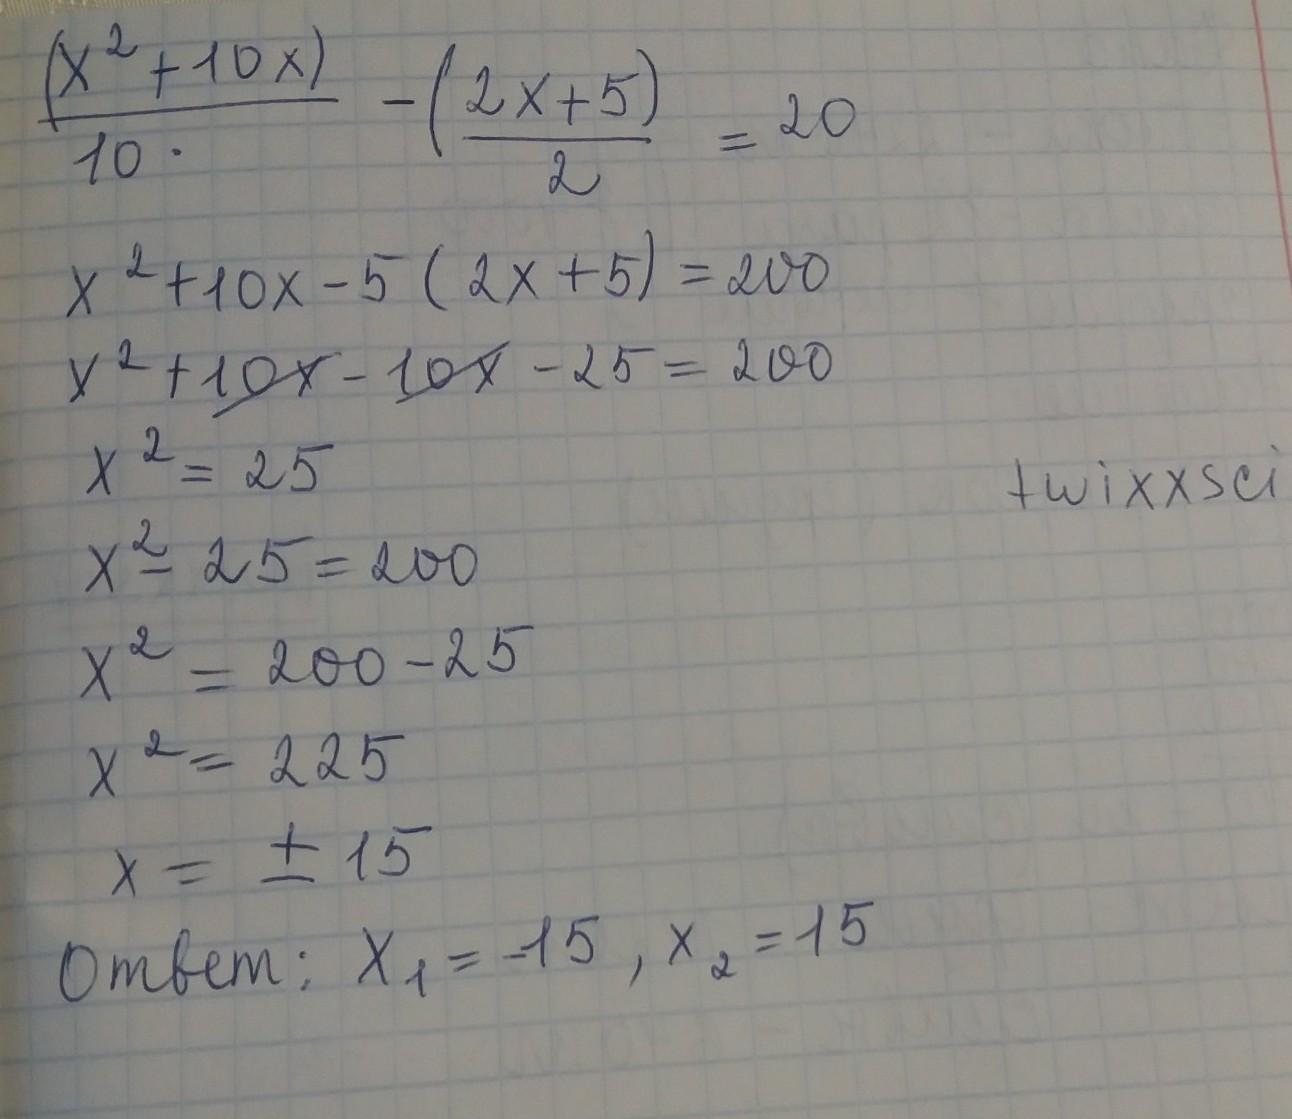 (x²+10x)/10 · - (2x+5)/2 = 20
x²+10x-5(2x+5)=200
x²+10x-10x-25=200
x²=25
twixxsci
x²-25=200
x²=200-25
x²=225
x=±15
Ответ: x₁=-15, x₂=15